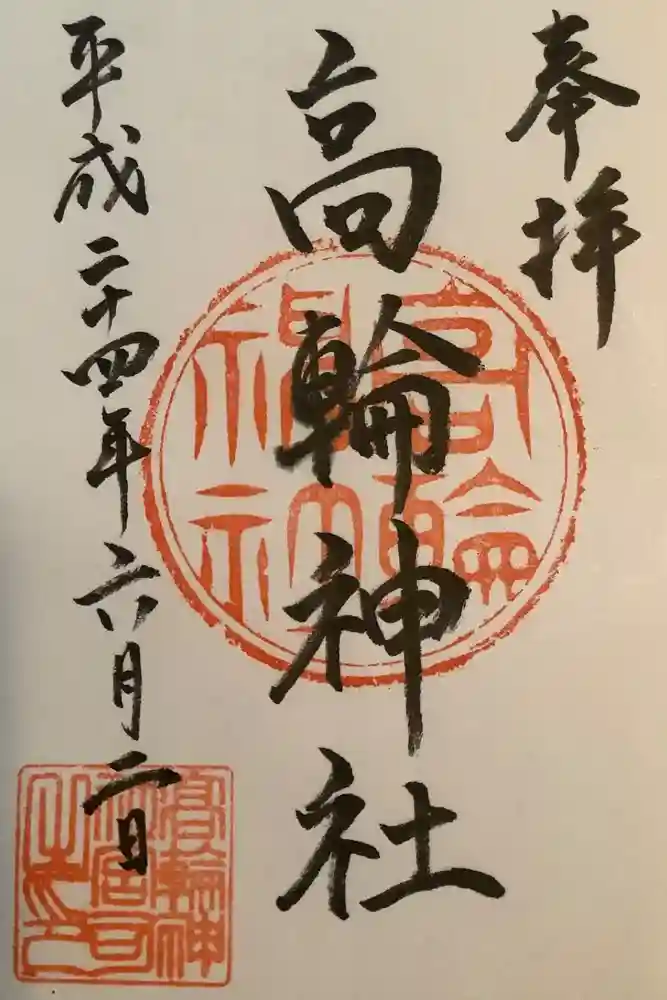 奉拝
高輪神社
平成二十四年六月二日
高輪
神社
高輪神
社宮司
之印